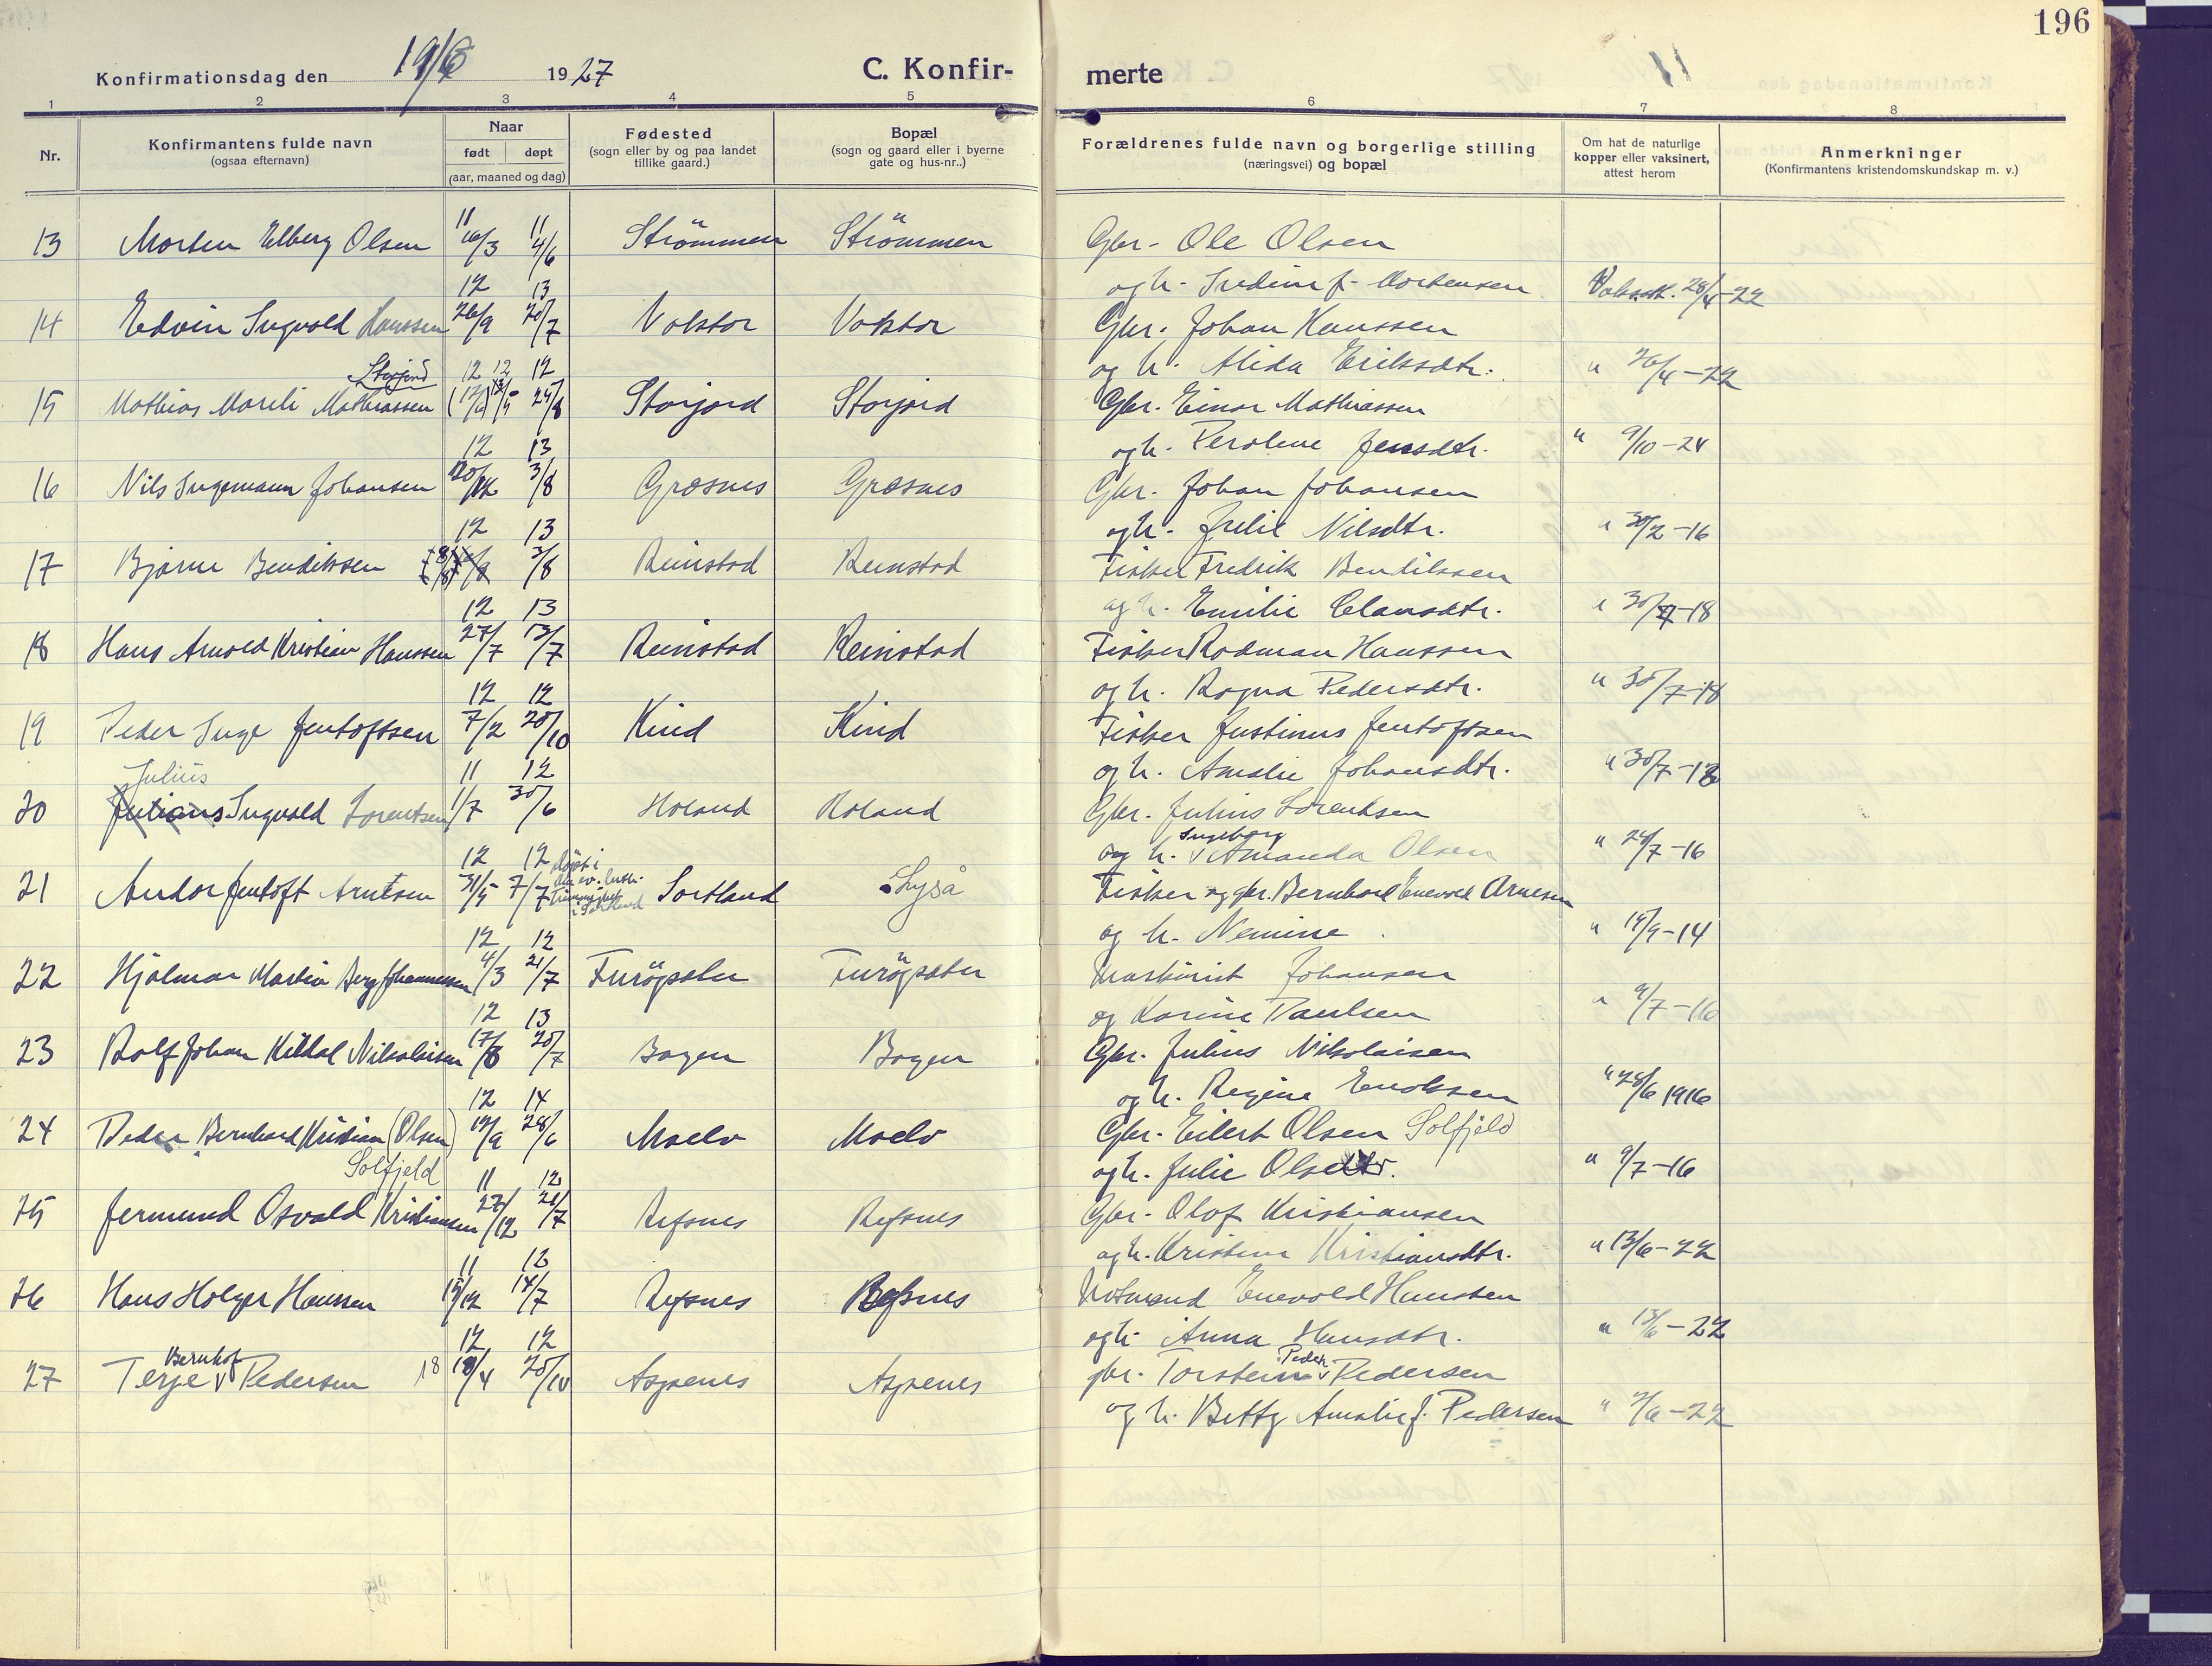 196
Konfirmationsdag den 19/6 1927 C. Konfir- merte
1 2 3 4 5 6 7 8
Nr.
Konfirmantens fulde navn
(ogsaa efternavn)
Naar
født døpt
(aar, maaned og dag)
Fødested
(sogn eller by og paa landet
tillike gaard.)
Bopæl
(sogn og gaard eller i byerne
gate og hus-nr..)
Forældrenes fulde navn og borgerlige stilling
(næringsvei) og bopæl
Om hat de naturlige
kopper eller vaksinert,
attest herom
Anmerkninger
(Konfirmantens kristendomskundskap m. v.)
11 11
13 Morten Elberg Olsen 16/3 4/6 Strömmen Strömmen Gbr. Ole Olsen
12 13 og h. Mortensen 28/4-22
14 Edvin Ingvald Hanssen 26/9 20/7 Vokstor Gbr. Johan Hanssen
Storjord 12 12 12 og h. Alida Eriksdtr. " 26/4-22
15 Mathias Mareli Mathiassen Storjord Storjord Gbr. Einar Mathiassen
12 13 og h. Peroline Jensdtr. " 9/10-24
16 Nils Ingemann Johansen 3/8 Græsnes Græsnes Gbr. Johan Johansen
12 13 og h. Julie Nilsdtr.
17 Bjarne Bendikssen 3/8 Reinstad Reinstad Fisker Fredrik Bendikssen
12 13 og h. Emilie Clausdtr.
18 Hans Arnold Kristian Hanssen 27/7 13/7 Reinstad Reinstad Fisker Rodman Hanssen
12 12 og h. Ragna Pedersdtr. " 30/7-18
19 Peder Inge Jentoftsen 7/2 20/10 Kind Kind Fisker Justinus Jentoftsen
Julius 11 12 og h. Amalie Johansdtr.
20 Ingvald Lorentsen 1/7 30/6 Holand Gbr. Julius Lorentsen
Ingeborg
12 12 og h. Amanda Olsen " 24/7-16
21 Andor Jentoft Arntsen 31/5 7/7 Sortland Lyså Fisker og gbr. Bernhard Enevold Arnesen
12 12 og h. Nemine
22 Hjalmar Martin Berg Johannessen 4/3 21/7 Furöysæter Furöysæter Maskinist Johansen
12 13 og Karine Paulsen " 9/7-16
23 Rolf Johan Kildal Nikolaisen 17/8 20/7 Bogen Bogen Gbr. Julius Nikolaisen
12 14 og h. Regine Enoksen " 28/6 1916
24 Peder Bernhard Kristian (Olsen) 28/6 Maelv Maelv Gbr. Eilert Olsen Solfjeld
Solfjeld 11 12 og h. Julie Olsdtr. " 9/7-16
25 Jermund Osvald Kristiansen 27/12 21/7 Refsnes Refsnes Gbr. Olaf Kristiansen
11 12 og h. Kristine Kristiansdtr. " 13/6-22
26 Hans Holger Hanssen 15/12 14/7 Refsnes Refsnes Notmand Enevold Hanssen
12 12 og h. Anna Hansdtr. " 13/6-22
Bernhof Peder
27 Terje Pedersen 18 18/4 20/10 Aspenes Aspenes gbr. Torstein Pedersen
og h. Betty Amalie f. Pedersen